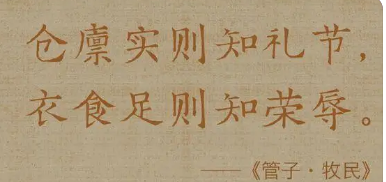 仓廪实则知礼节，
衣食足则知荣辱。
——《管子·牧民》